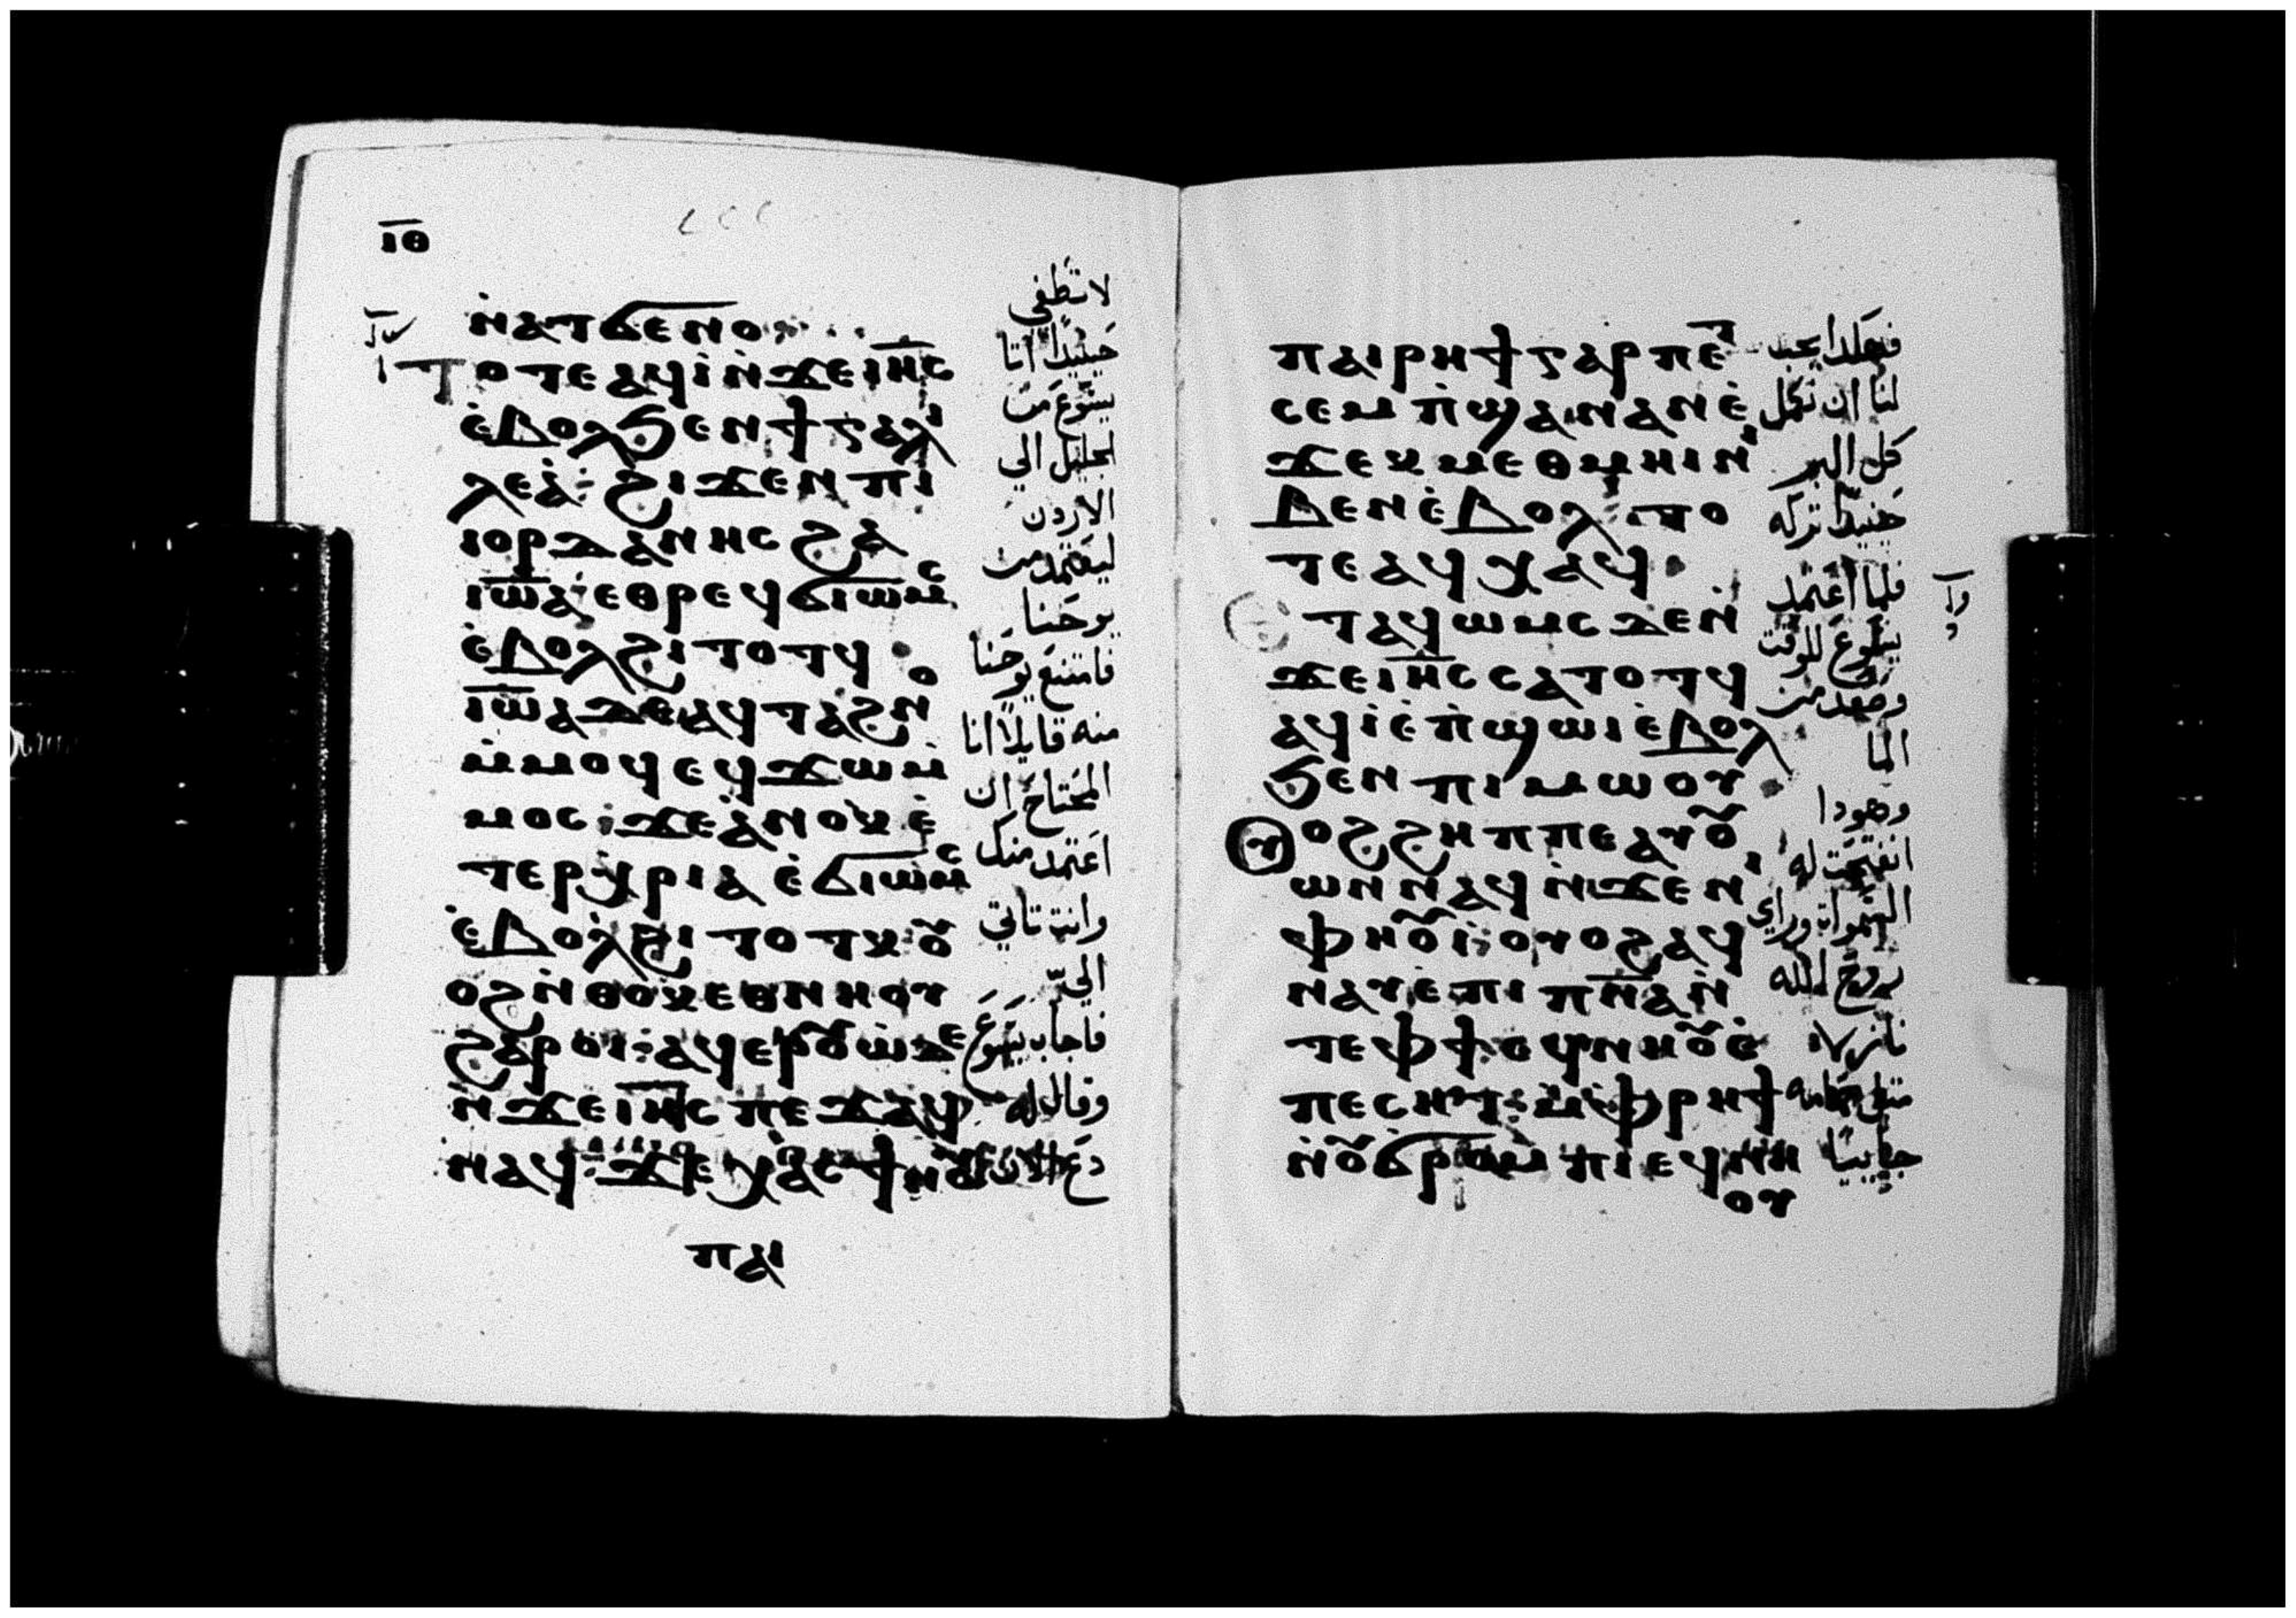 ⲓ̅ⲑ̅
ⲛ̀ⲁⲧϭⲉⲛⲟ
ⲧⲟⲧⲉ ⲁϥⲓ̀ ⲛ̀ϫⲉ ⲓⲏ̅ⲥ
ⲉ̀ⲃⲟⲗ ϧⲉⲛ ϯⲅⲁⲗⲓ
ⲗⲉⲁ̀ : ϩⲓϫⲉⲛ ⲡⲓ
ⲓⲟⲣⲇⲁⲛⲏⲥ ϩⲁ
ⲓⲱ̅ⲁ ⲉⲑⲣⲉϥϭⲓⲱⲙⲥ
ⲉ̀ⲃⲟⲗ ϩⲓⲧⲟⲧϥ
ⲓⲱ̅ⲁ ⲇⲉ ⲁϥⲧⲁϩⲛⲟ
ⲙ̀ⲙⲟϥ ⲉϥϫⲱⲙ̀
ⲙⲟⲥ : ϫⲉ ⲁ̀ⲛⲟⲕ ⲉ̀
ⲧⲉⲣⲭⲣⲓⲁ ⲉ̀ϭⲓⲱⲙⲥ
ⲉ̀ⲃⲟⲗ ϩⲓⲧⲟⲧⲕ ⲟⲩ
ⲟϩ ⲛ̀ⲑⲟⲕ ⲉⲑⲛⲏⲟⲩ
ϩⲁⲣⲟⲓ : ⲁϥⲉⲣⲟⲩⲱ̀ ⲇⲉ
ⲛ̀ϫⲉ ⲓⲏ̅ⲥ ⲡⲉϫⲁϥ
ⲛⲁϥ : ϫⲉ ⲭⲁⲥ ϯⲛⲟⲩ
ⲡⲁⲓ
لا تطفي
حينيذاً اتا
يسوع من
الجليل الي
الاردن
ليعتمد من
يوحنا
فامتنع يوحنا
منه قايلاً انا
المحتاج ان
اعتمد منك
وانت تاتي
اليّ
فاجاب يسوع
وقال له
دع الان
ⲡⲁⲓⲣⲏϯ ⲅⲁⲣ ⲡⲉⲧ
ⲥⲉⲙⲡ̀ϣⲁ ⲛⲁⲛ ⲉ̀
ϫⲉⲕ ⲙⲉⲑⲙⲏⲓ ⲛⲓ
ⲃⲉⲛ ⲉ̀ⲃⲟⲗ : ⲧⲟ
ⲧⲉ ⲁϥⲭⲁϥ
ⲧⲁϥⲱⲙⲥ ⲇⲉ ⲛ̀
ϫⲉ ⲓⲏ̅ⲥ ⲥⲁⲧⲟⲧϥ
ⲁϥⲓ̀ ⲉ̀ⲡ̀ϣⲱⲓ ⲉ̀ⲃⲟⲗ
ϧⲉⲛ ⲡⲓⲙⲱⲟⲩ
ⲟⲩⲟϩ ϩⲏⲡⲡⲉ ⲁⲩⲟⲩ
ⲱⲛ ⲛⲁϥ ⲛ̀ϫⲉ ⲛⲓ
ⲫⲏⲟⲩⲓ̀ : ⲟⲩⲟϩ ⲁϥ
ⲛⲁⲩ ⲉ̀ⲡⲓⲡⲛ̅ⲁ ⲛ̀
ⲧⲉ ⲫϯ ⲉϥⲛⲏⲟⲩ ⲉ̀
ⲡⲉⲥⲏⲧ : ⲙ̀ⲫⲣⲏϯ
ⲛ̀ⲟⲩϭⲣⲟⲙⲡⲓ ⲉϥⲛⲏ
ⲟⲩ
فهكذا يجب
لنا ان نكمل
كل البر
حينيذاً تركه
فلما اعتمد
يسوع للوقت
وصعد من
الما
وهودا
انفتحت له
السموات وراي
روح الله
نازلا
مثل حمامه
جايياً